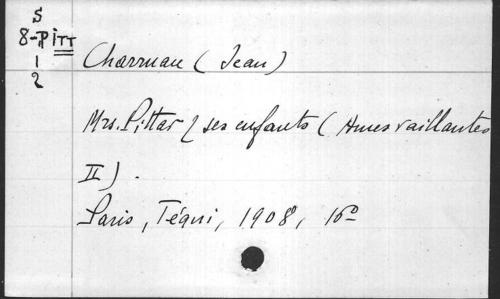 S
8-PITT
1
2
Charruau (Jean)
Mrs. Pittar & ses enfants (Ames vaillantes
II).
Paris, Téqui, 1908, 16º